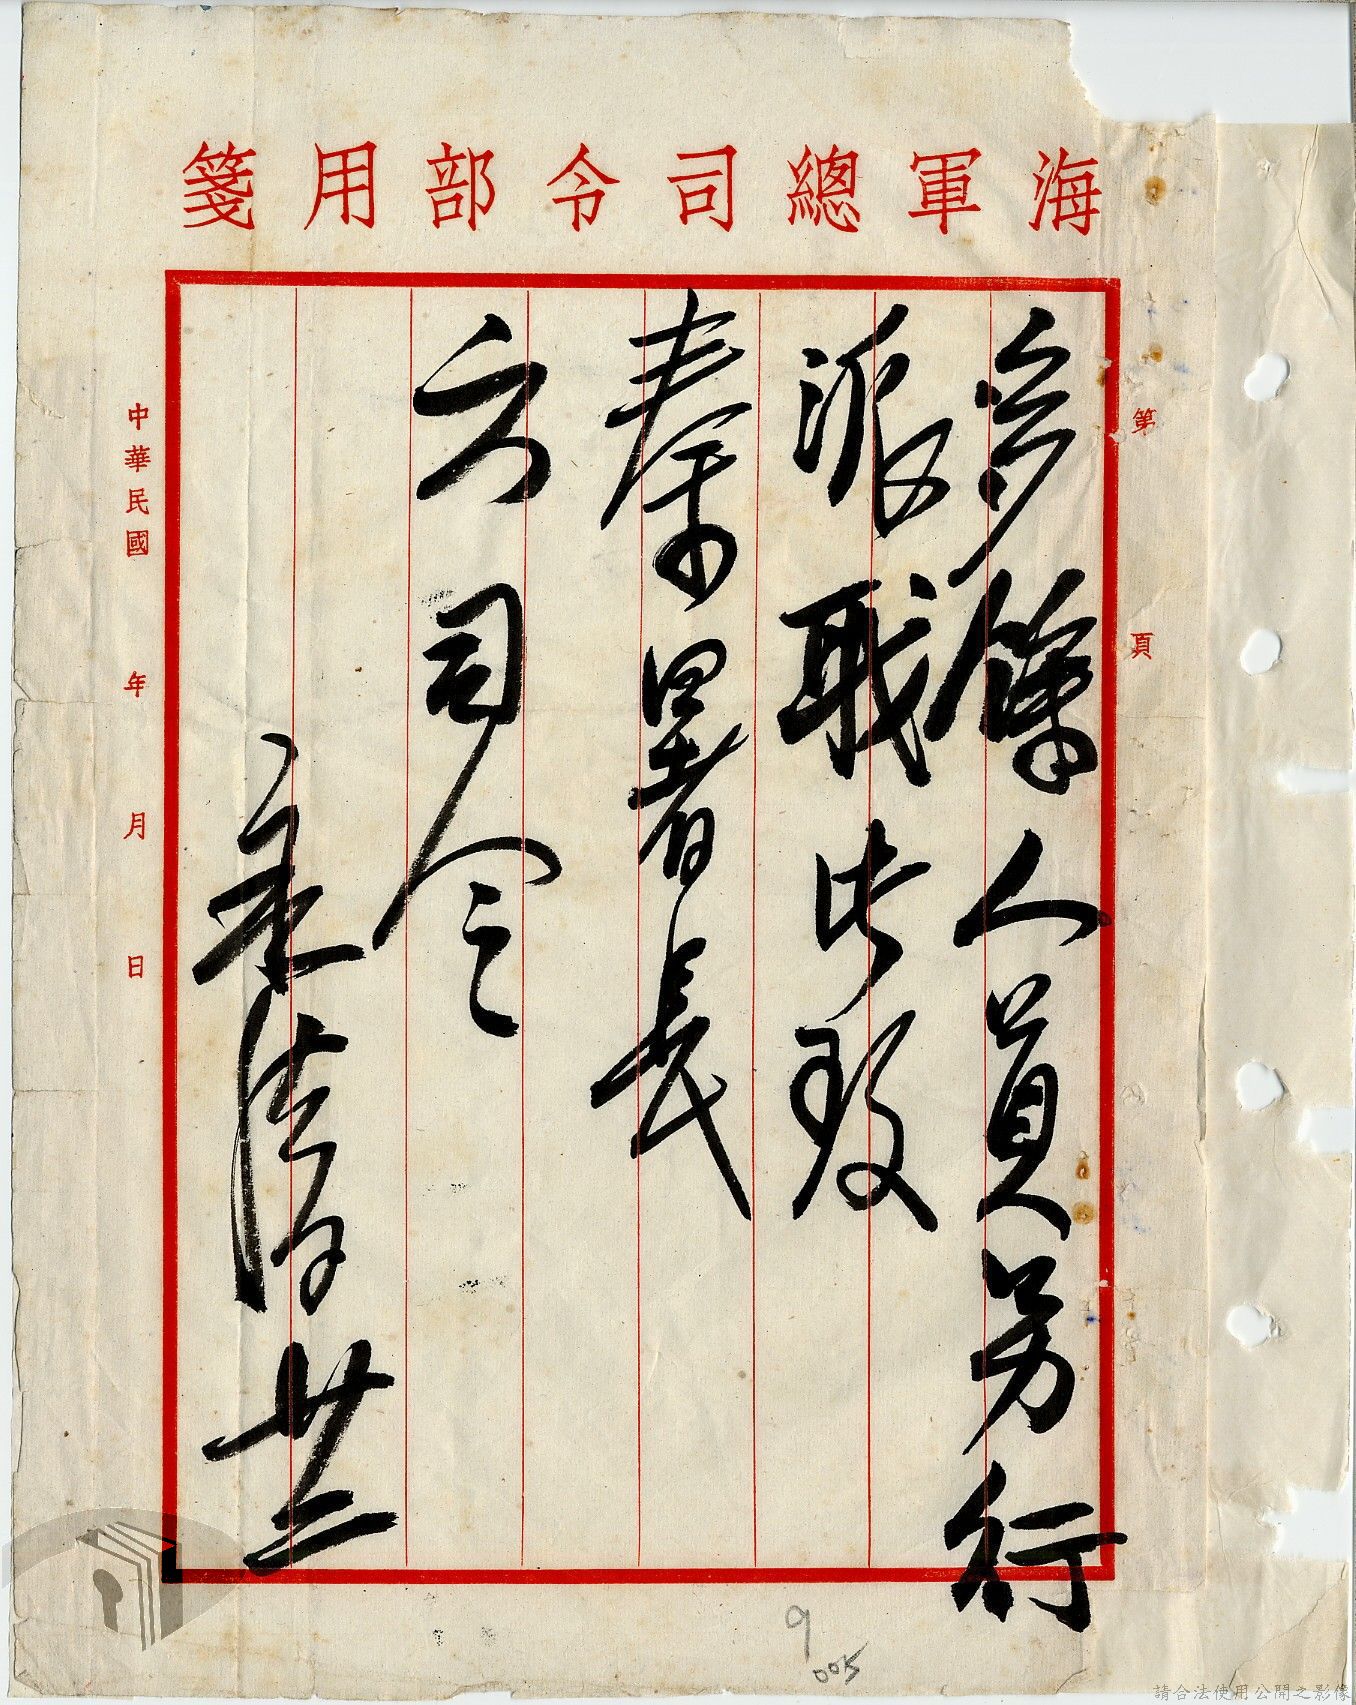 海軍總司令部用箋
第 頁
多餘人員另行
派職此致
秦署長
方司令
桂永清 廿二
中華民國 年 月 日
9
005
請合法使用公開之影像